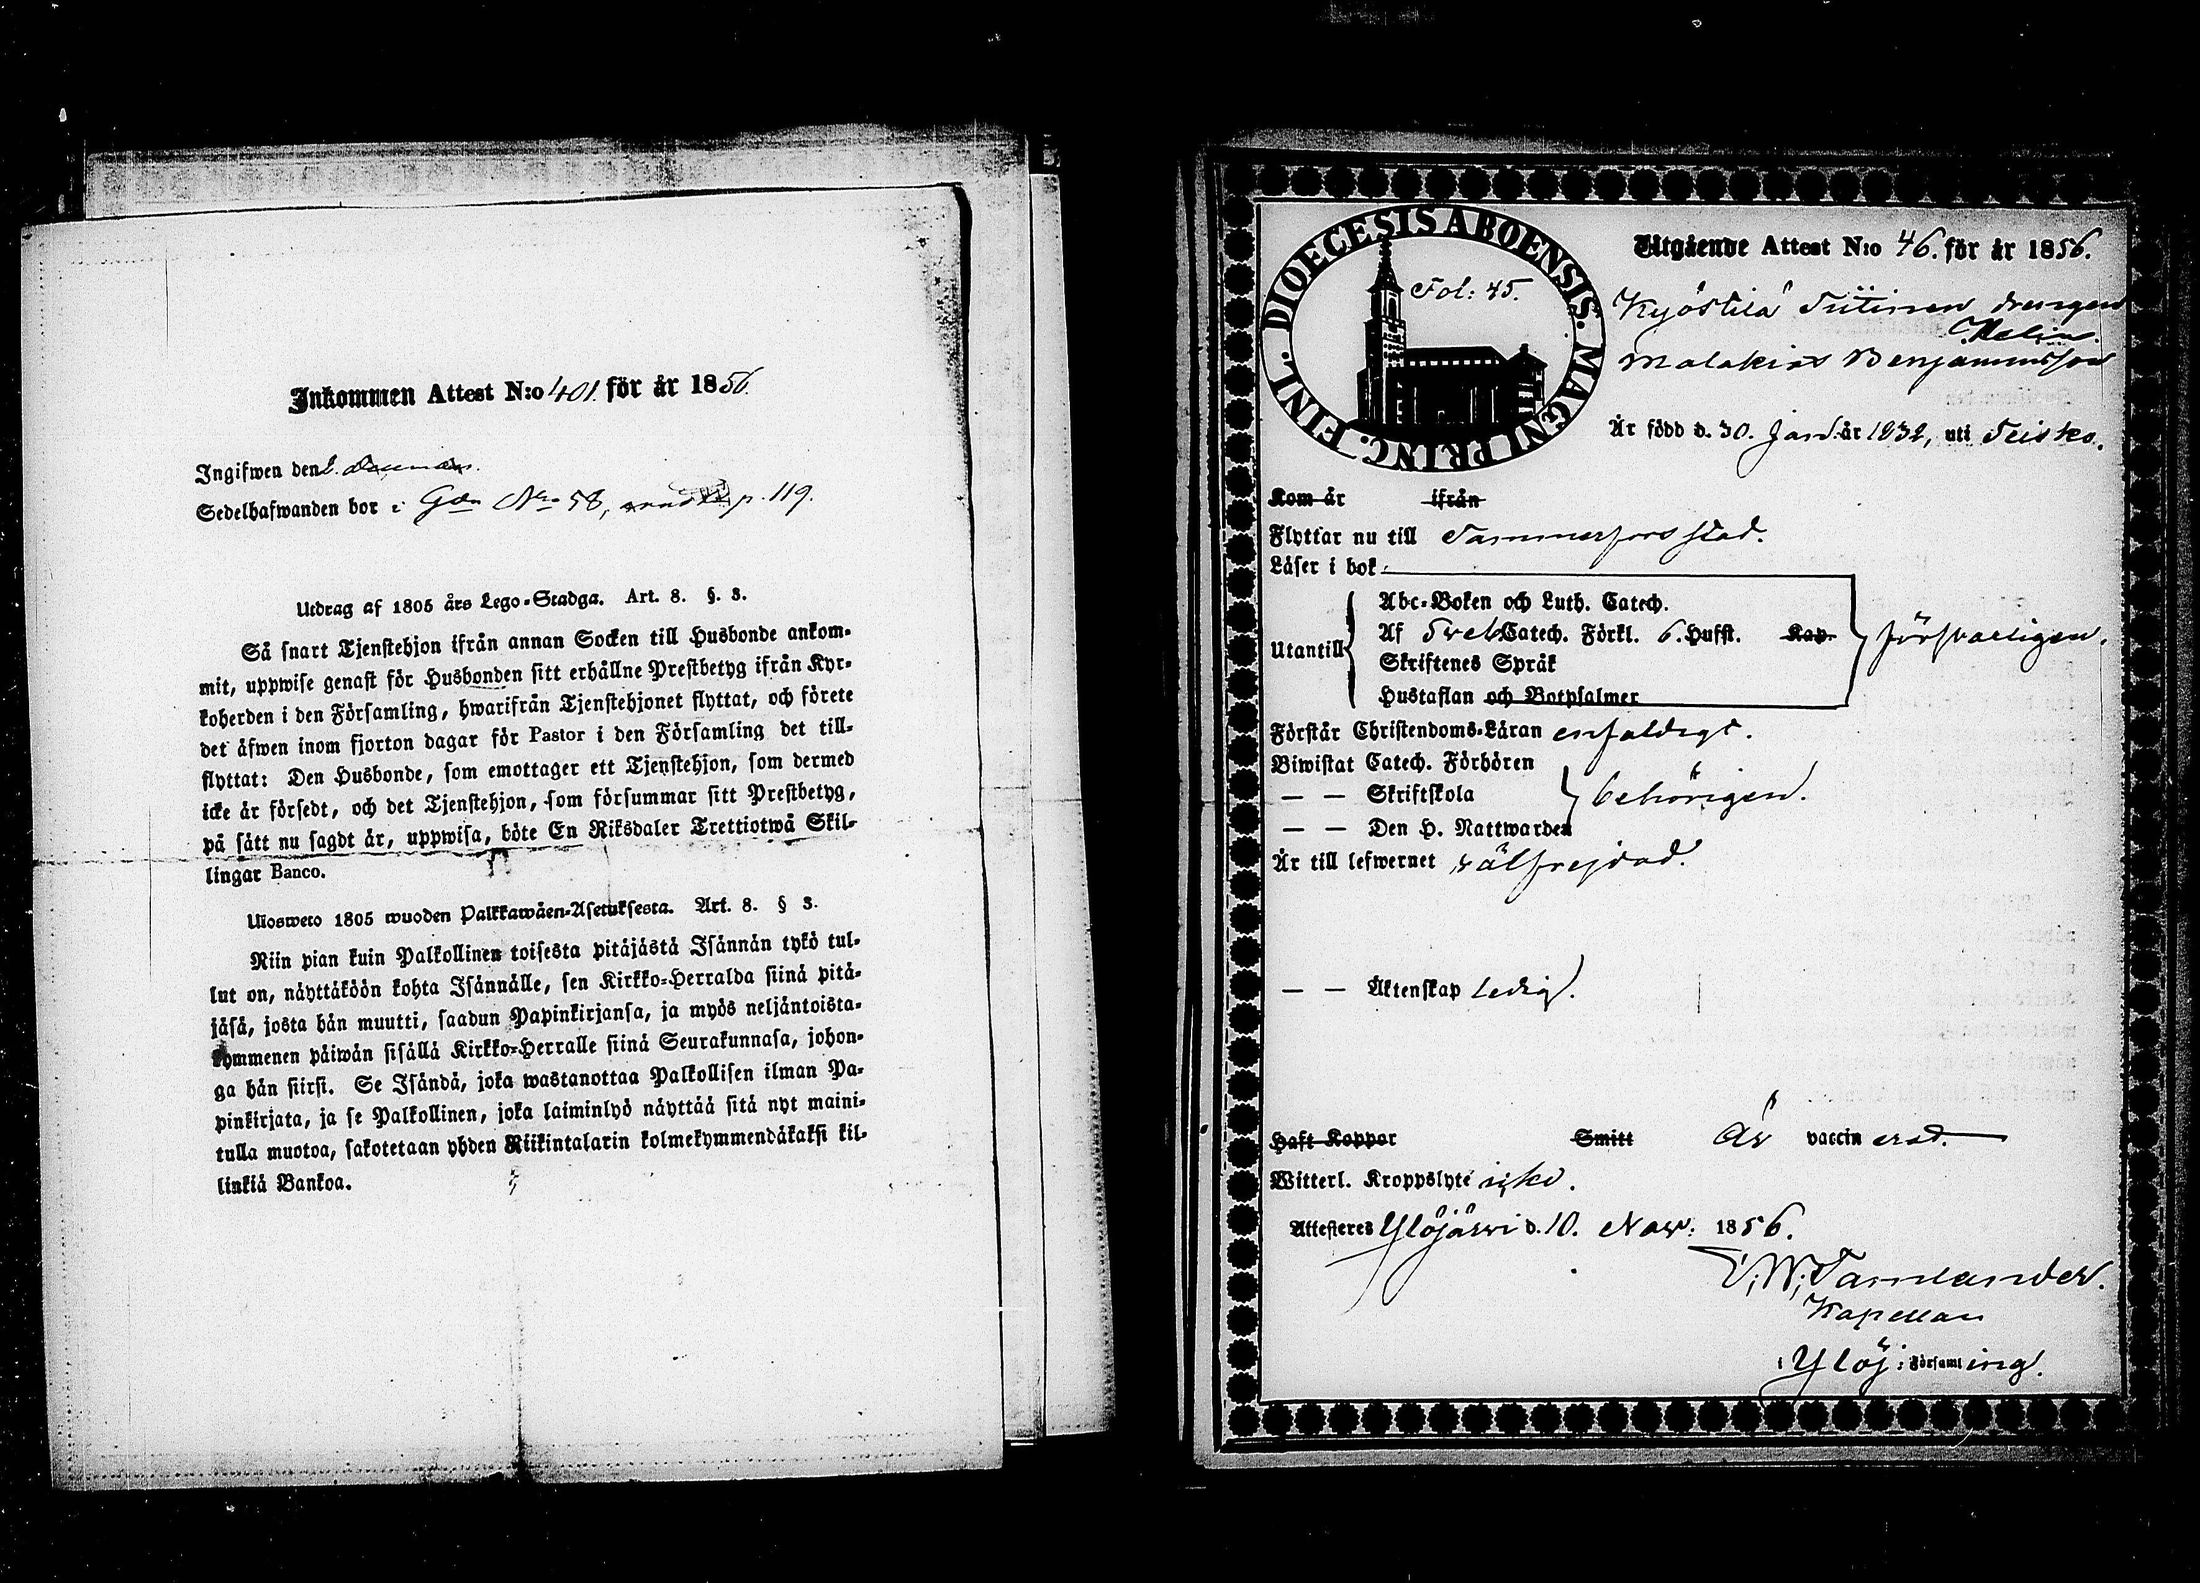 Inkommen Attest N:o 401. för år 1856.
Ingifwen den
Sedelhafwanden bor i Gån Nro 58, p. 119.
Utdrag af 1805 års Lego-Stadga. Art. 8. §. 3.
Så snart Tjenstehjon ifrån annan Socken till Husbonde ankom-
mit, uppwise genast för Husbonden sitt erhållne Prestbetyg ifrån Kyr-
koherden i den Församling, hwarifrån Tjenstehjonet flyttat, och förete
det äfwen inom fjorton dagar för Pastor i den Församling det till-
flyttat: Den Husbonde, som emottager ett Tjenstehjon, som dermed
icke är försedt, och det Tjenstehjon, som försummar sitt Prestbetyg,
på sätt nu sagdt är, uppwisa, böte En Riksdaler Trettiotwå Skil-
lingar Banco.
Ulosweto 1805 wuoden Palkkawäen-Asetuksesta. Art. 8. § 3.
Niin pian kuin Palkollinen toisesta pitäjästä Isännän tykö tul-
lut on, näyttäköön kohta Isännälle, sen Kirkko-Herralda siinä pitä-
jäsä, josta hän muutti, saadun Papinkirjansa, ja myös neljäntoista-
kymmenen päiwän sisällä Kirkko-Herralle siinä Seurakunnasa, johon-
ga hän siirsi. Se Isändä, joka wastanottaa Palkollisen ilman Pa-
pinkirjata, ja se Palkollinen, joka laiminlyö näyttää sitä nyt maini-
tulla muotoa, sakotetaan yhden Riikintalarin kolmekymmendäkaksi kil-
linkiä Bankoa.
DIOECESIS ABOENSIS. MAGNI PRINC. FINL.
Fol: 45.
Utgående Attest N:o 46. för år 1856.
Kyöstilä Tiitinen drengen
Malakias Benjaminsson
Är född d. 30. Jan. år 1832, uti Teisko.
Kom år ifrån
Flyttar nu till Tammerfors stad.
Läser i bok
Utantill
Abc-Boken och Luth. Catech.
Af Catech. Förkl. 6. Hufst. Kap.
Skriftenes Språk
Hustaflan och Botpsalmer
försvarligen.
Förstår Christendoms-Läran enfaldigt.
Biwistat Catech. Förhören
— — Skriftskola
— — Den H. Nattwarden
behörigen.
Är till lefwernet välfrejdad.
— — Äktenskap ledig.
Haft Koppor Smitt Är vaccinerad.
Witterl. Kroppslyte icke.
Attesteres Ylöjärvi d. 10. Nov: 1856.
Tamlander.
Kapellan
i Ylöj: Församling.